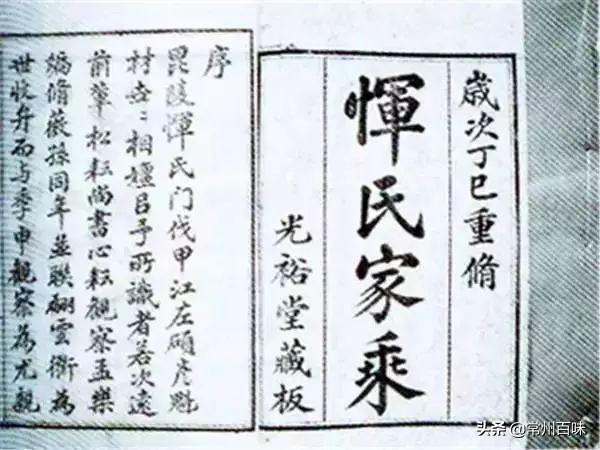 歲次丁巳重脩
惲氏家乘
光裕堂藏板
序
毘陵惲氏门伐甲江左碩彦魁
材世〻相嬗㠯予所識者若次遠
前輩松耘尚書心耘觀察孟樂
編脩薇孫同年並聯翩雲衢為
世而与季申觀察為尤親
头条 @常州百味